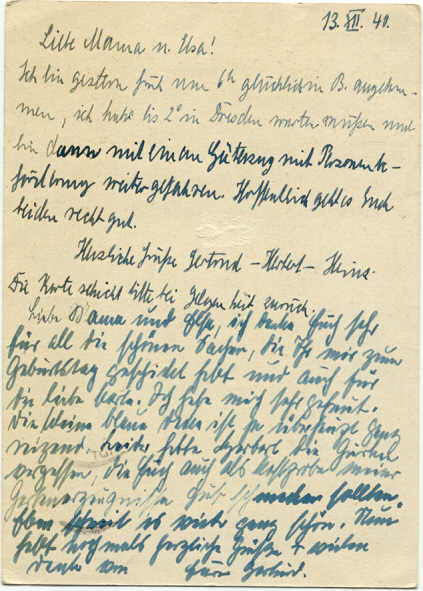 13. XII. 40.
Liebe Mama u. Elsa!
Ich bin gestern früh um 6h glücklich in B. angekom-
men, ich habe bis 2° in Dresden warten müssen und
bin dann mit einem Güterzug mit Personenbe-
förderung weitergefahren. Hoffentlich geht es Euch
beiden recht gut.
Herzliche Grüße Gertrud – Herbert – Heins.
Die Karte schickt bitte bei Gelegenheit zurück.
Liebe Mama und Else, ich danke Euch sehr
für all die schönen Sachen, die Ihr mir zum
Geburtstag geschickt habt und auch für
die liebe Karte. Ich habe mich sehr gefreut.
Die kleine blaue Decke ist ja überhaupt ganz
reizend. Leider hatte Herbert die Gurken
vergessen, die Euch auch als Kostprobe meiner
Gartenerzeugnisse gut schmecken sollten.
Eben ist es wieder ganz schön. Nun
habt nochmals herzliche Grüße + vielen
Dank von Eurer Gertrud.